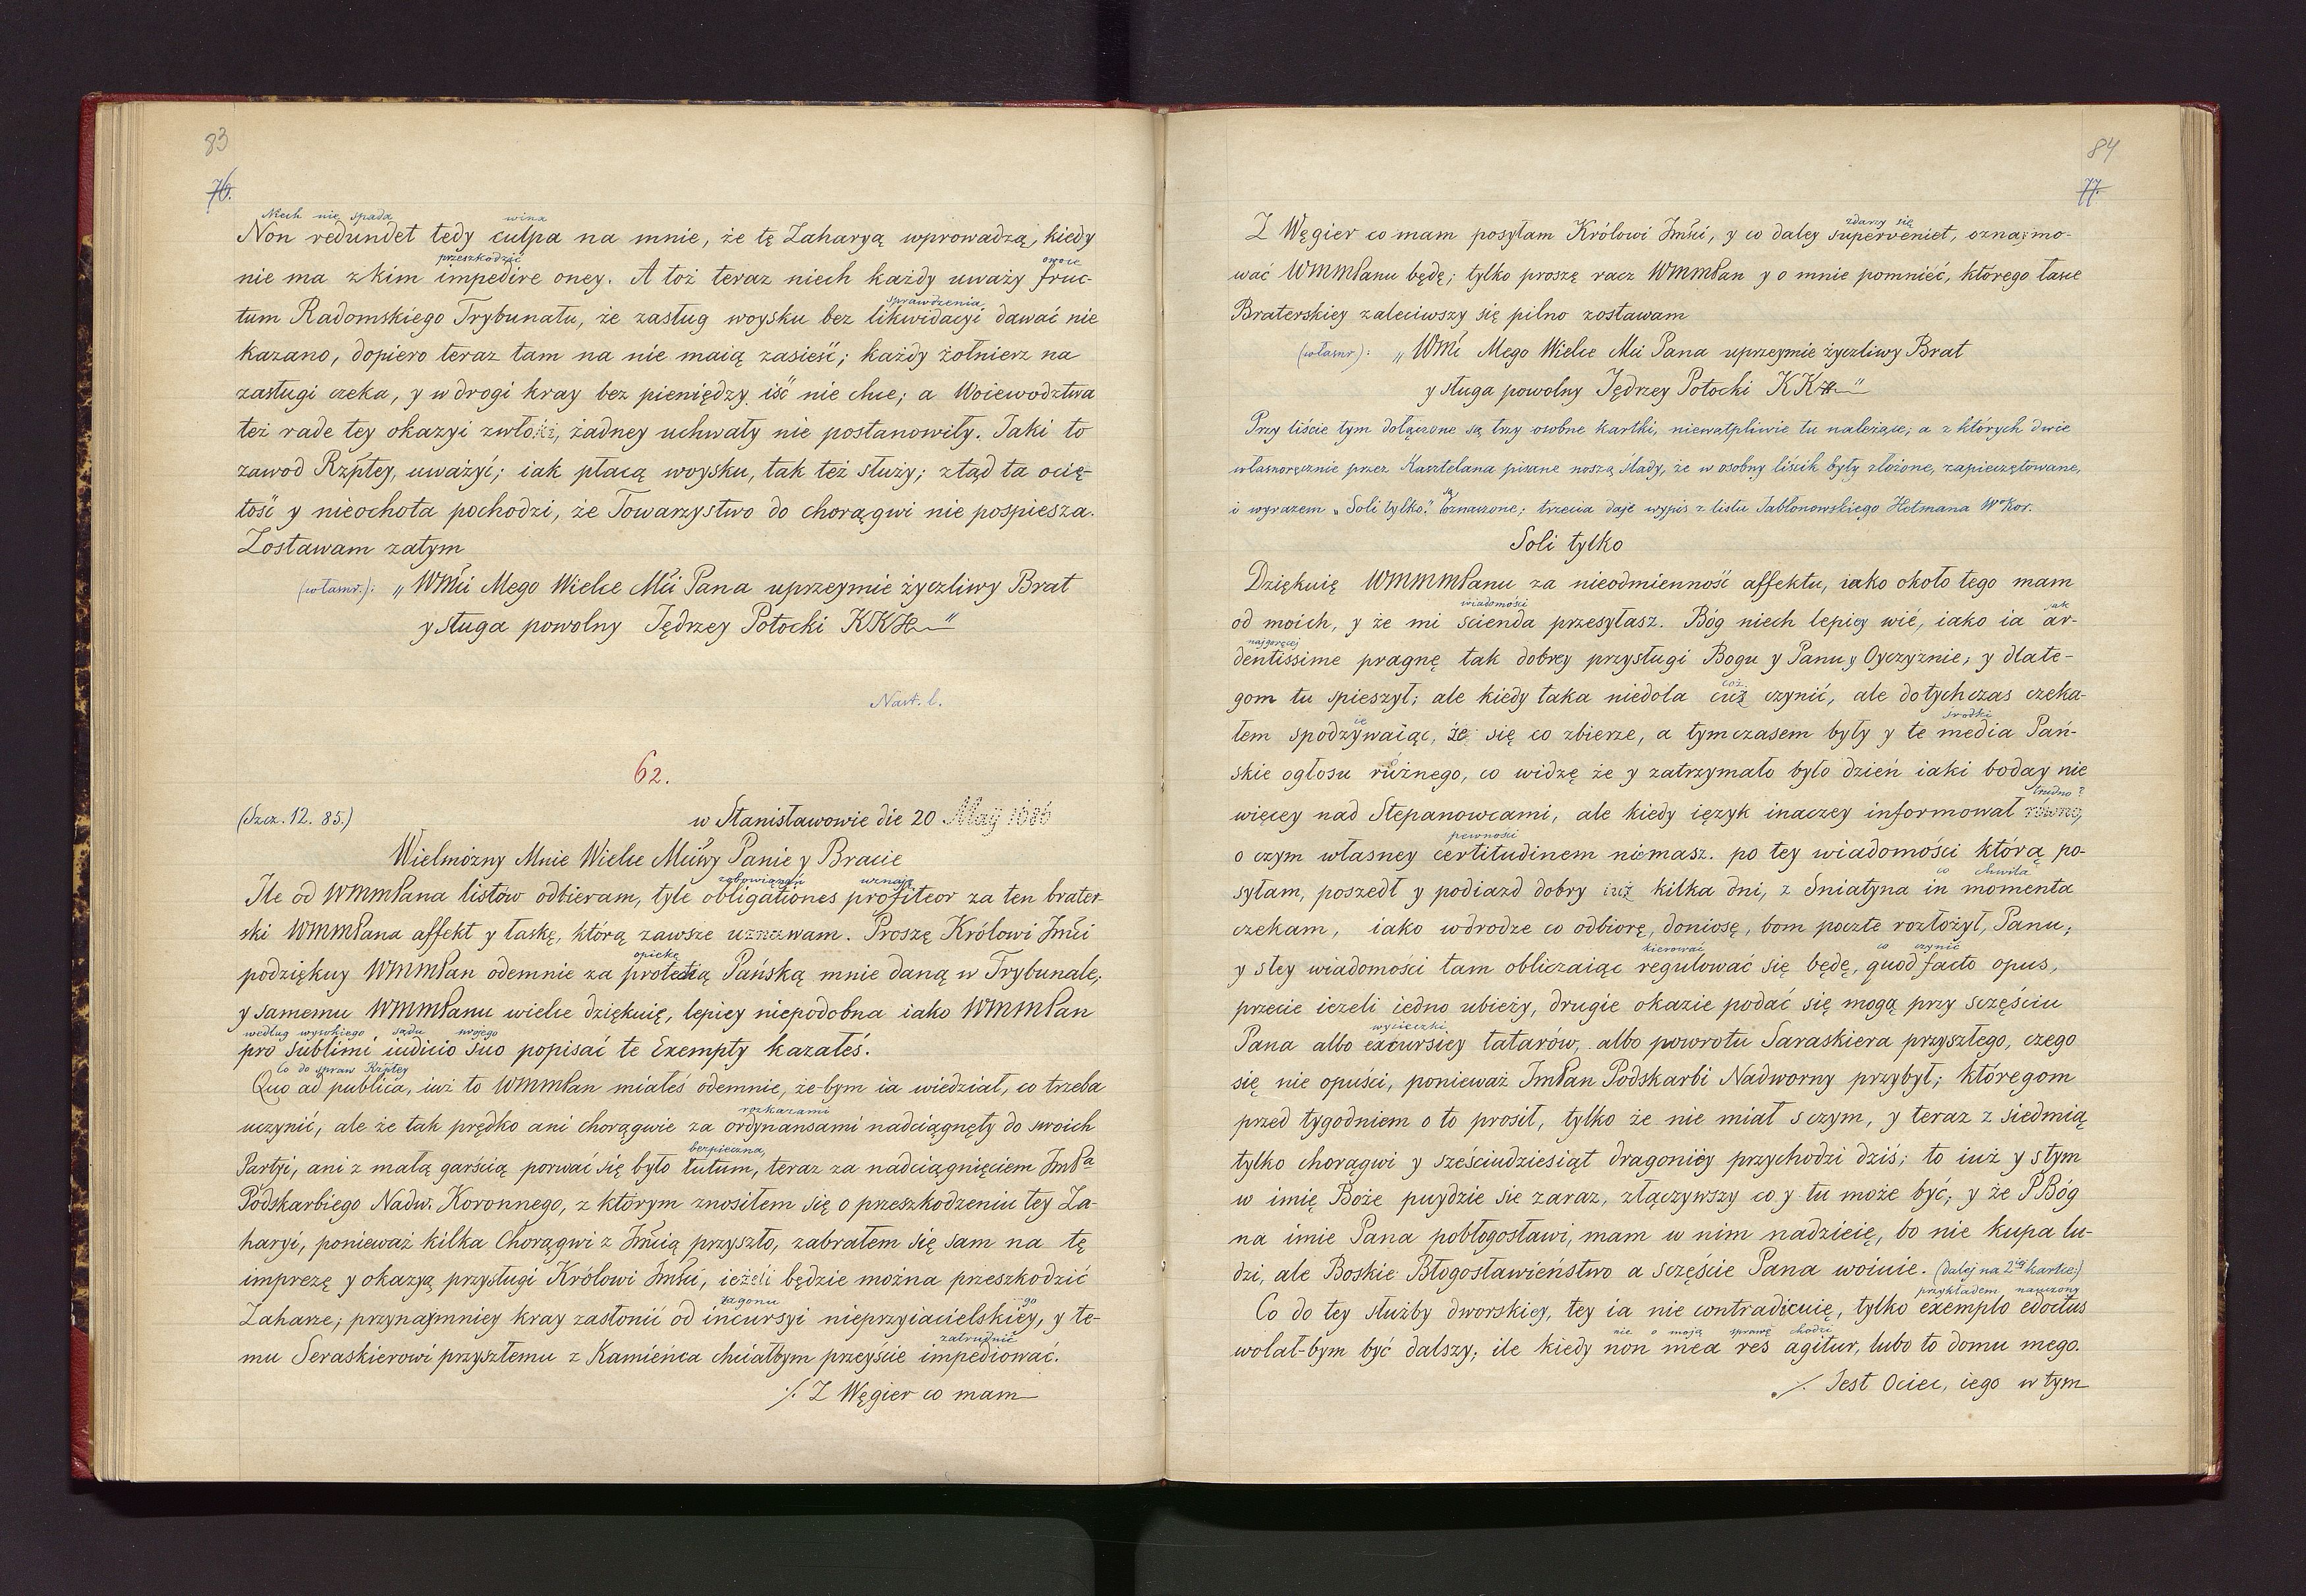 83
76.
Niech nie spada wina
Non redundet tedy culpa na mnie, że tę Zaharyą wprowadzą, kiedy
przeszkodzić owoce
nie ma z kim impedire oney. A toż teraz niech każdy uważy fruc-
sprawdzenia
tum Radomskiego Trybunału, że zasług woysku bez likwidacyi dawać nie
kazano, dopiero teraz tam na nie maią zasieść; każdy żołnierz na
zasługi czeka, y w drogi kray bez pieniędzy iść nie chce; a Woiewodztwa
też rade tey okazyi zwłoki, żadney uchwały nie postanowiły. Jaki to
zawod Rzptey, uważyć; iak płacą woysku, tak też służy; ztąd ta ocię-
tość y nieochota pochodzi, że Towarzystwo do chorągwi nie pospiesza.
Zostawam zatym
(własnr.): „WMci Mego Wielce Mci Pana uprzeymie życzliwy Brat
y sługa powolny Jędrzey Potocki KKH"
Nast. l.
62.
(Szcz. 12. 85.) w Stanisławowie die 20 Maij 1686
Wielmożny Mnie Wielce Mciwy Panie y Bracie
zobowiązań uznaję
Ile od WMMPana listów odbieram, tyle obligationes profiteor za ten brater-
ski WMMPana affekt y łaskę, którą zawsze uznawam. Proszę Królowi Jmści
opiekę
podziękuy WMMPan odemnie za protectią Pańską mnie daną w Trybunale,
y samemu WMMPanu wielce dziękuię, lepiey niepodobna iako WMMPan
według wysokiego sądu swojego
pro sublimi iudicio suo popisać te Exempty kazałeś.
Co do spraw Rzptey
Quo ad publica, iuż to WMMPan miałeś odemnie, że-bym ia wiedział, co trzeba
rozkazami
uczynić, ale że tak prędko ani chorągwie za ordynansami nadciągnęły do swoich
bezpieczna,
Partyi, ani z małą garścią porwać się było tutum, teraz za nadciągnięciem JmPa
Podskarbiego Nadw. Koronnego, z którym znosiłem się o przeszkodzeniu tey Za-
haryi, ponieważ kilka Chorągwi z Jmcią przyszło, zabrałem się sam na tę
imprezę y okazyą przysługi Królowi Jmści, ieżeli będzie można przeszkodzić
zagonu go
Zaharze; przynaymniey kray zasłonić od incursyi nieprzyiacielskiey, y te-
zatrudnić
mu Seraskierowi przyszłemu z Kamieńca chciałbym przeyście impediować.
./. Z Węgier co mam
84
77.
zdarzy się
Z Węgier co mam posyłam Królowi Jmści, y co daley superveniet, oznaimo-
wać WMMPanu będę; tylko proszę racz WMMPan y o mnie pomnieć, którego łasce
Braterskiey zaleciwszy się pilno zostawam
(własnr): „WMci Mego Wielce Mci Pana uprzeymie życzliwy Brat
y sługa powolny Jędrzey Potocki KKH"
Przy liście tym dołączone są trzy osobne kartki, niewątpliwie tu należące; a z których dwie
własnoręcznie przez Kasztelana pisane noszą ślady, że w osobny liścik były złożone, zapieczętowane,
są
i wyrazem „Soli tylko." oznaczone; trzecia daje wypis z listu Jabłonowskiego Hetmana W Kor.
Soli tylko
Dziękuię WMMMPanu za nieodmienność affektu, iako około tego mam
wiadomości jak
od moich, y że mi scienda przesyłasz. Bóg niech lepiey wié, iako ia ar-
najgoręcej
dentissime pragnę tak dobrey przysługi Bogu y Panu y Oyczyznie; y dlate-
coż
gom tu spieszył; ale kiedy taka niedola cuż czynić, ale dotychczas czeka-
ie środki
łem spodzywaiąc, że się co zbierze, a tymczasem były y te media Pań-
skie ogłosu różnego, co widzę że y zatrzymało było dzień iaki boday nie
trudno?
więcey nad Stepanowcami, ale kiedy ięzyk inaczey informował równo,
pewności
o czym własney certitudinem niemasz. po tey wiadomości którą po-
co chwila
syłam, poszedł y podiazd dobry iuż kilka dni, z Sniatyna in momenta
czekam, iako wdrodze co odbiorę, doniosę, bom poczte rozłożył, Panu;
kierować co czynić
y stey wiadomości tam obliczaiąc regulować się będę, quod facto opus,
przecie iezeli iedno ubieży, drugie okazie podać się mogą przy sczęściu
wycieczki
Pana albo excursiey tatarów, albo powrotu Saraskiera przyszłego, czego
się nie opuści, ponieważ JmPan Podskarbi Nadworny przybył; któregom
przed tygodniem o to prosił, tylko że nie miał sczym, y teraz z siedmią
tylko chorągwi y sześciudziesiąt dragoniey przychodzi dziś; to iuż y stym
w imię Boże puydzie sie zaraz, złączywszy co y tu może być; y że PBóg
na imie Pana pobłogosławi, mam w nim nadzieię, bo nie kupa lu-
dzi, ale Boskie Błogosławieństwo a sczęście Pana woiuie. (dalej na 2iej kartce:)
przykładem nauczony
Co do tey służby dworskiey, tey ia nie contradicuię, tylko exemplo edoctus
nie o moją sprawę chodzi
wolał-bym być dalszy; ile kiedy non mea res agitur, lubo to domu mego.
./. Jest Ociec, iego w tym